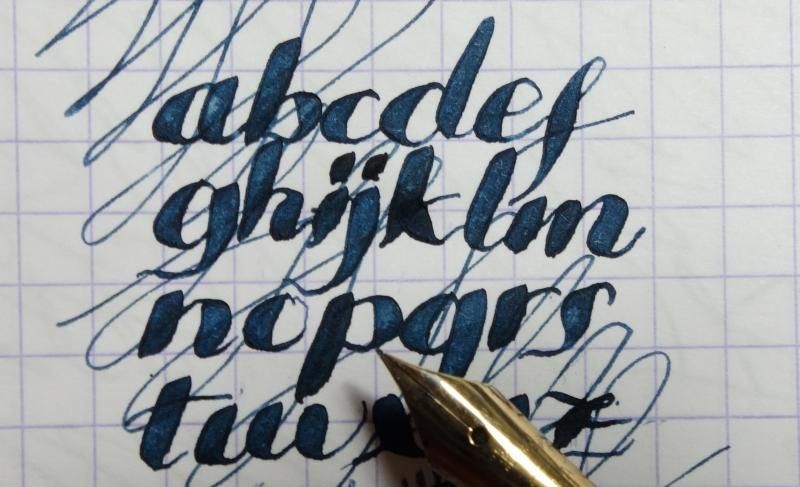 abcdef
ghijklm
nopqrs
tuv z